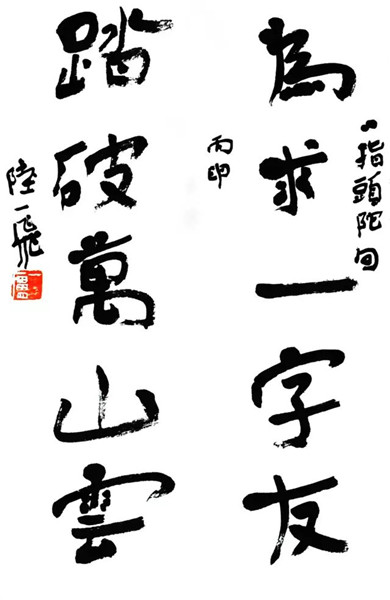 八指頭陀句
為求一字友
丙申
踏破萬山雲
陸一飛